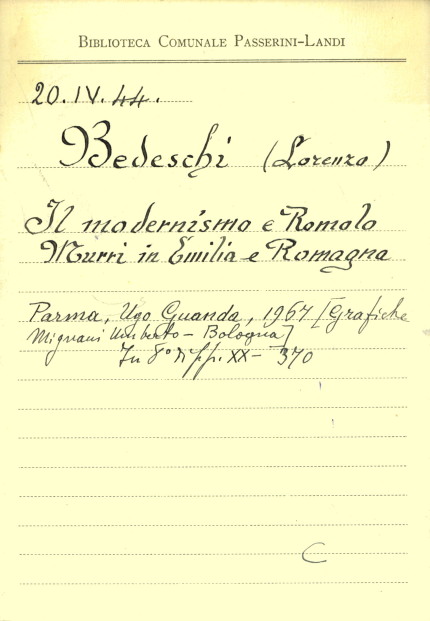 BIBLIOTECA COMUNALE PASSERINI-LANDI
20. IV. 44.
Bedeschi (Lorenzo)
Il modernismo e Romolo
Murri in Emilia e Romagna
Parma, Ugo Guanda, 1967 [Grafiche
Mignani Umberto - Bologna]
In 8° di pp. XX - 370
C